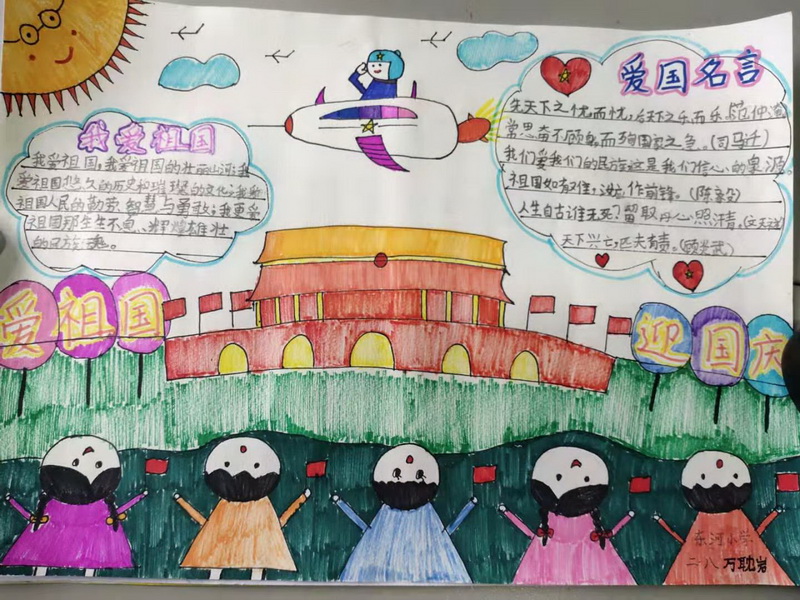 我爱祖国
我爱祖国,我爱祖国的壮丽山河;我
爱祖国悠久的历史和璀璨的文化;我爱
祖国人民的勤劳、智慧与勇敢;我更爱
祖国那生生不息、辉煌雄壮
的民族魂。
爱国名言
先天下之忧而忧,后天下之乐而乐。范仲淹
常思奋不顾身,而殉国家之急。(司马迁)
我们爱我们的民族,这是我们信心的泉源
祖国如有难,汝作前锋。(陈毅)
人生自古谁无死?留取丹心照汗青。(文天祥)
天下兴亡,匹夫有责。(顾炎武)
爱祖国
迎国庆
东河小学
二八 万耽岩